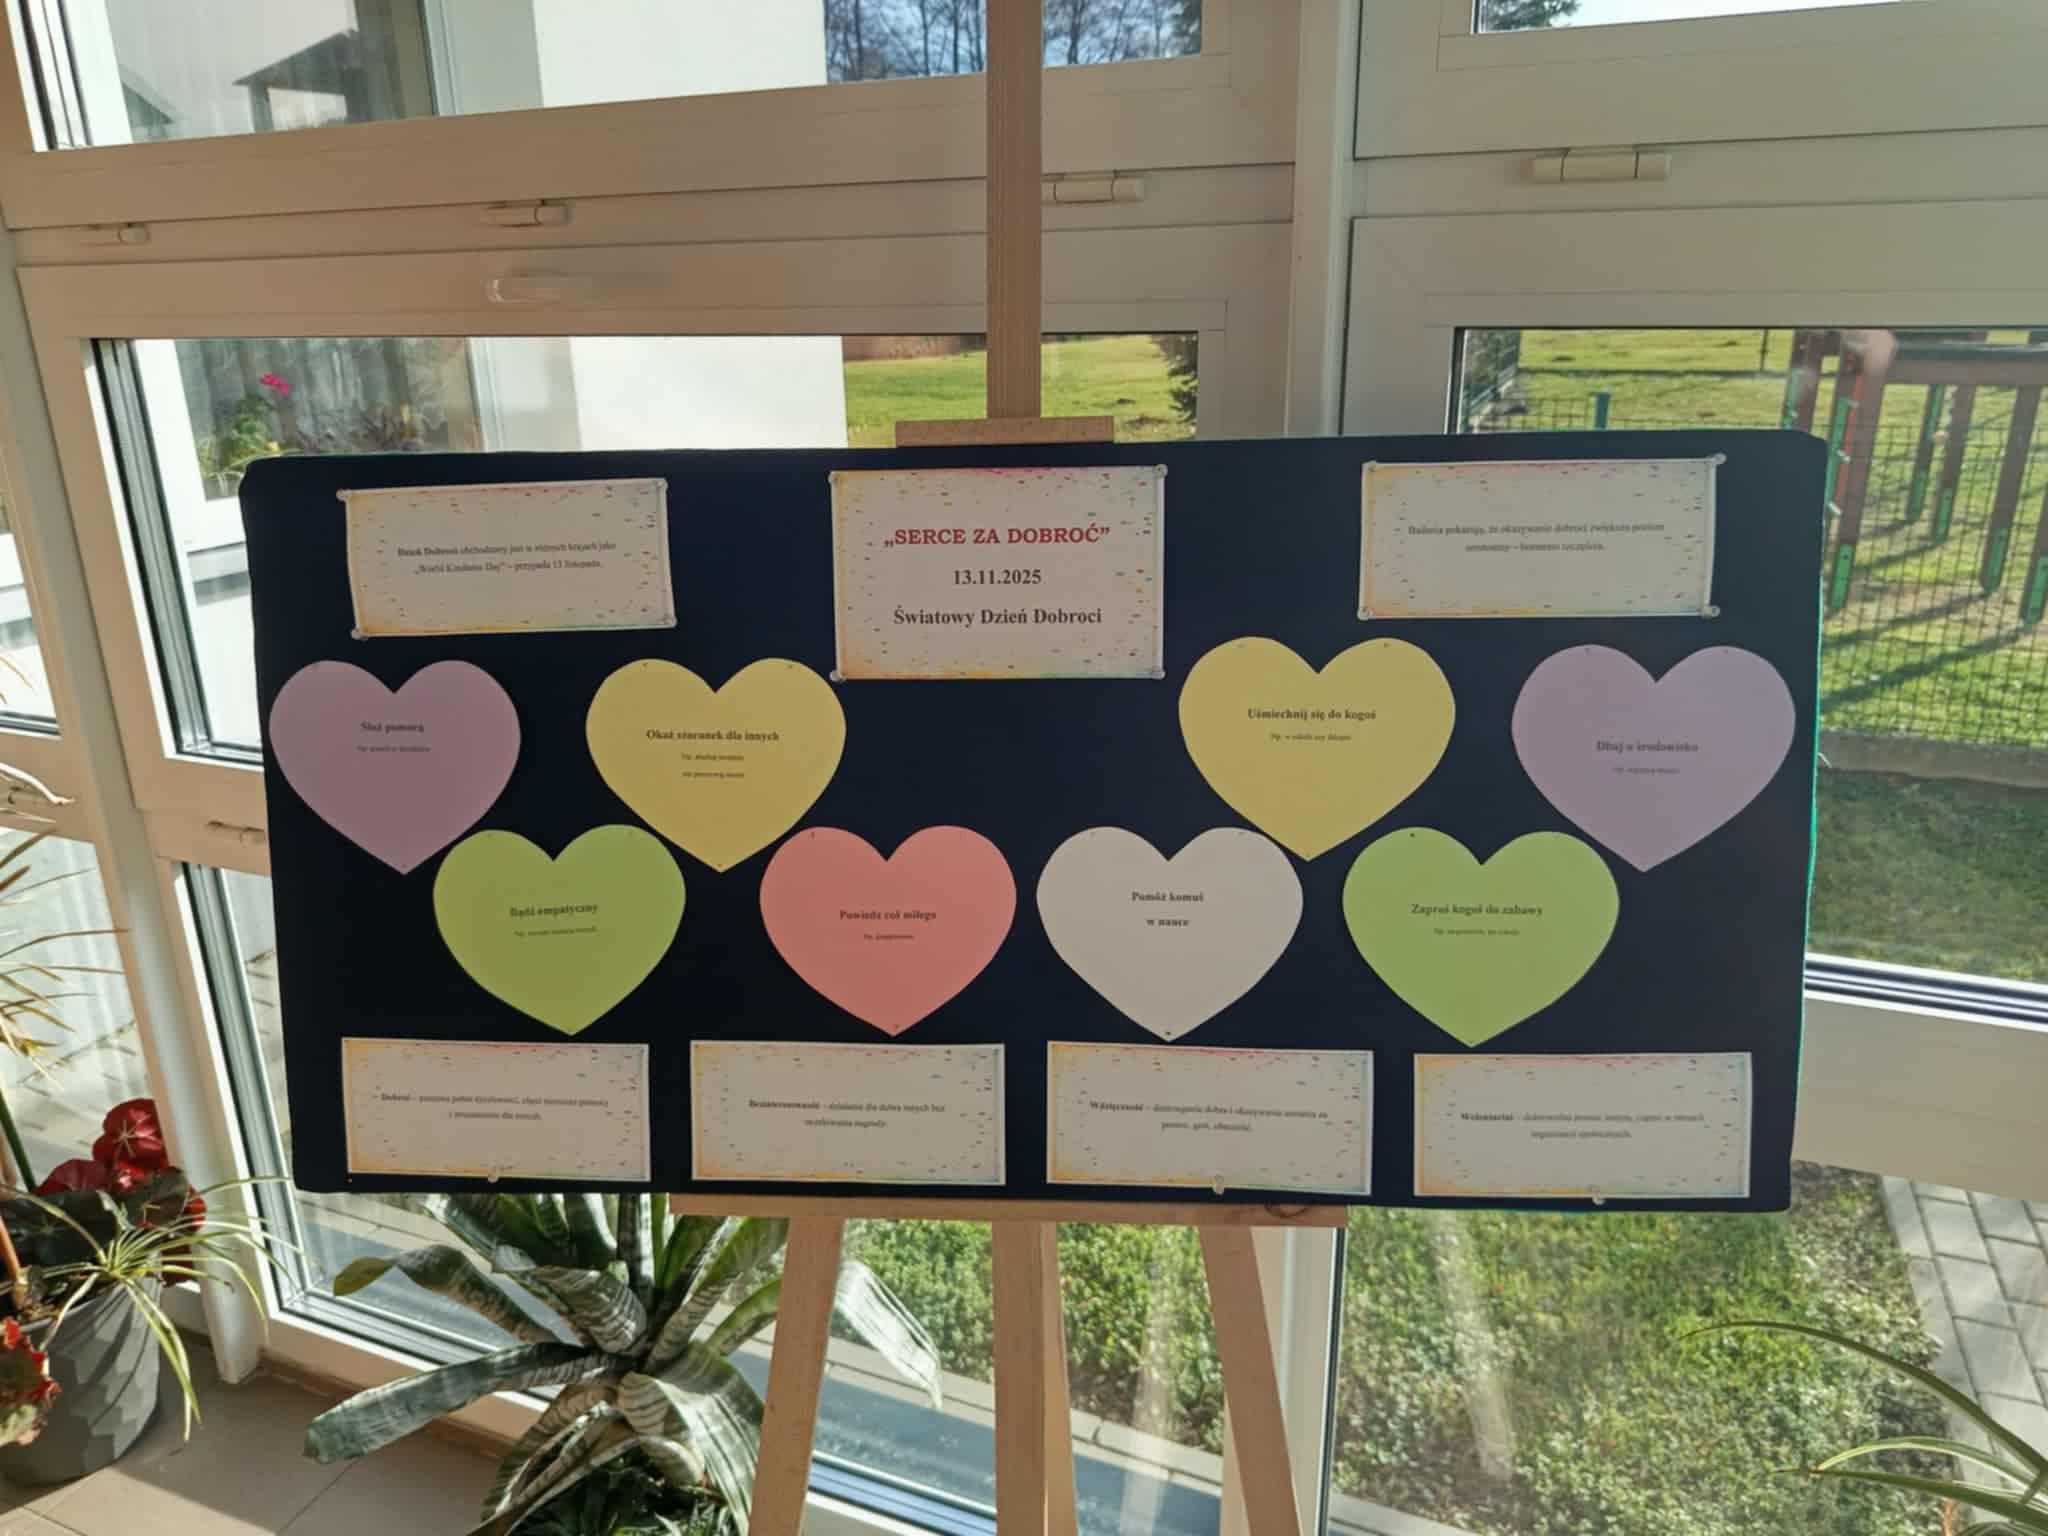 Dzień Dobroci obchodzony jest w różnych krajach jako
„World Kindness Day” – przypada 13 listopada.
„SERCE ZA DOBROĆ”
13.11.2025
Światowy Dzień Dobroci
Badania pokazują, że okazywanie dobroci zwiększa poziom
serotoniny – hormonu szczęścia.
Służ pomocą
Okaż szacunek dla innych
Uśmiechnij się do kogoś
Np. w szkole czy sklepie
Dbaj o środowisko
Bądź empatyczny
Powiedz coś miłego
Np. komplement
Pomóż komuś
w nauce
Zaproś kogoś do zabawy
Np. na przerwie, po szkole
Dobroć – postawa pełna życzliwości, chęci niesienia pomocy
i zrozumienia dla innych.
Bezinteresowność – działanie dla dobra innych bez
oczekiwania nagrody.
Wdzięczność – dostrzeganie dobra i okazywanie uznania za
pomoc, gest, obecność.
Wolontariat – dobrowolna pomoc innym, często w ramach
organizacji społecznych.